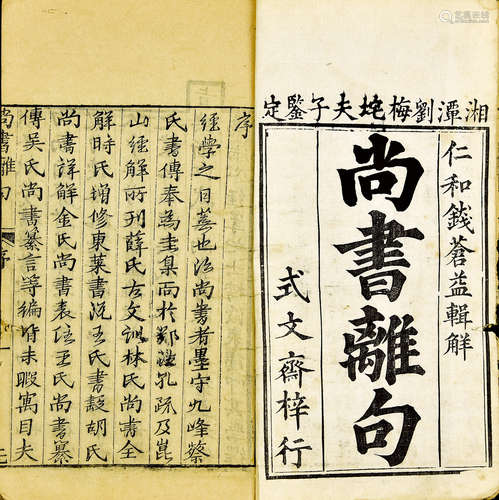 湘潭劉梅垞夫子鑒定
仁和錢蒼益輯解
尚書離句
式文齋梓行
序
經學之日蕪也治尚書者墨守九峰蔡
氏書傳奉為圭臬而於鄭注孔疏及崑
山經解所刊薛氏古文訓林氏尚書全
解時氏增修東萊書說王氏書疑胡氏
尚書詳解金氏尚書表注王氏尚書纂
傳吳氏尚書纂言等編皆未暇寓目夫
尚書離句
序